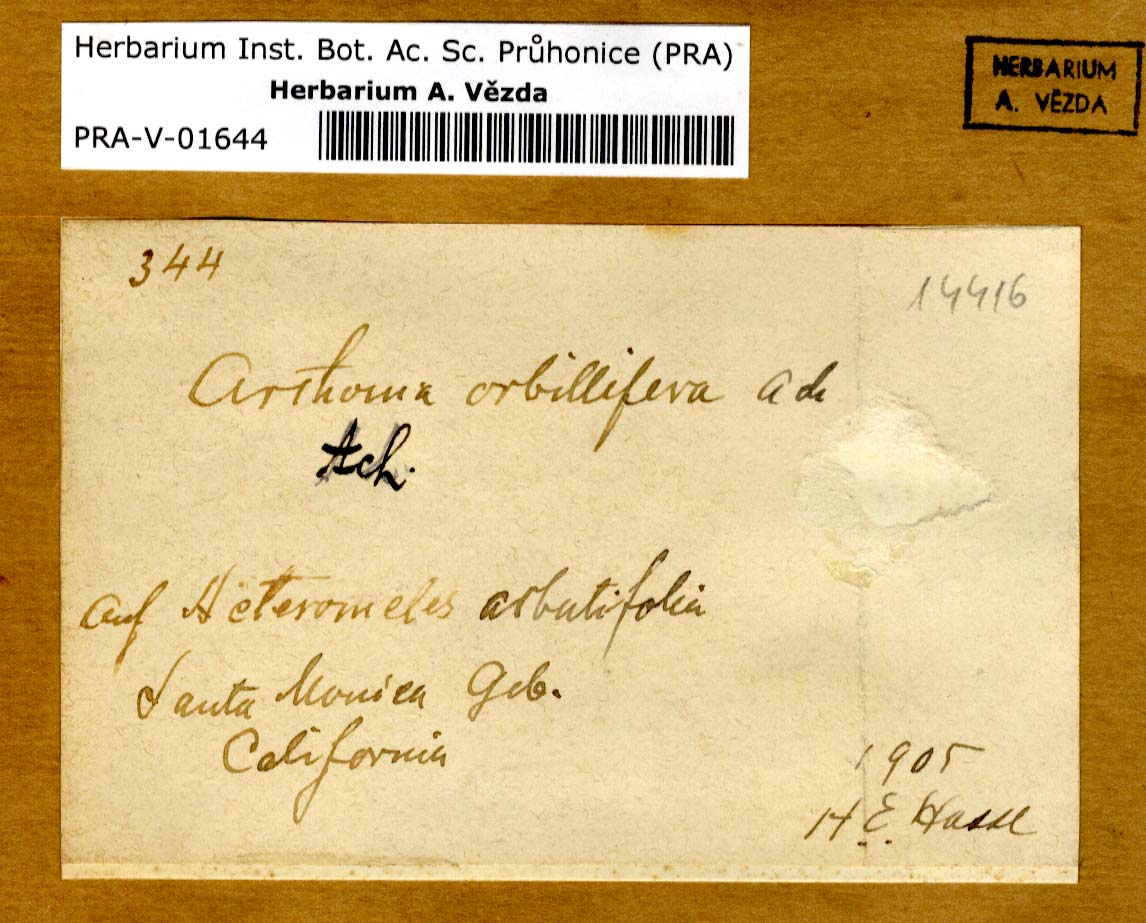 Herbarium Inst. Bot. Ac. Sc. Průhonice (PRA)
Herbarium A. Vězda
PRA-V-01644
HERBARIUM
A. VĚZDA
344
14416
Arthonia orbillifera Ach
Ach.
auf Heteromeles arbutifolia
Santa Monica Geb.
California
1905
H E Hasse